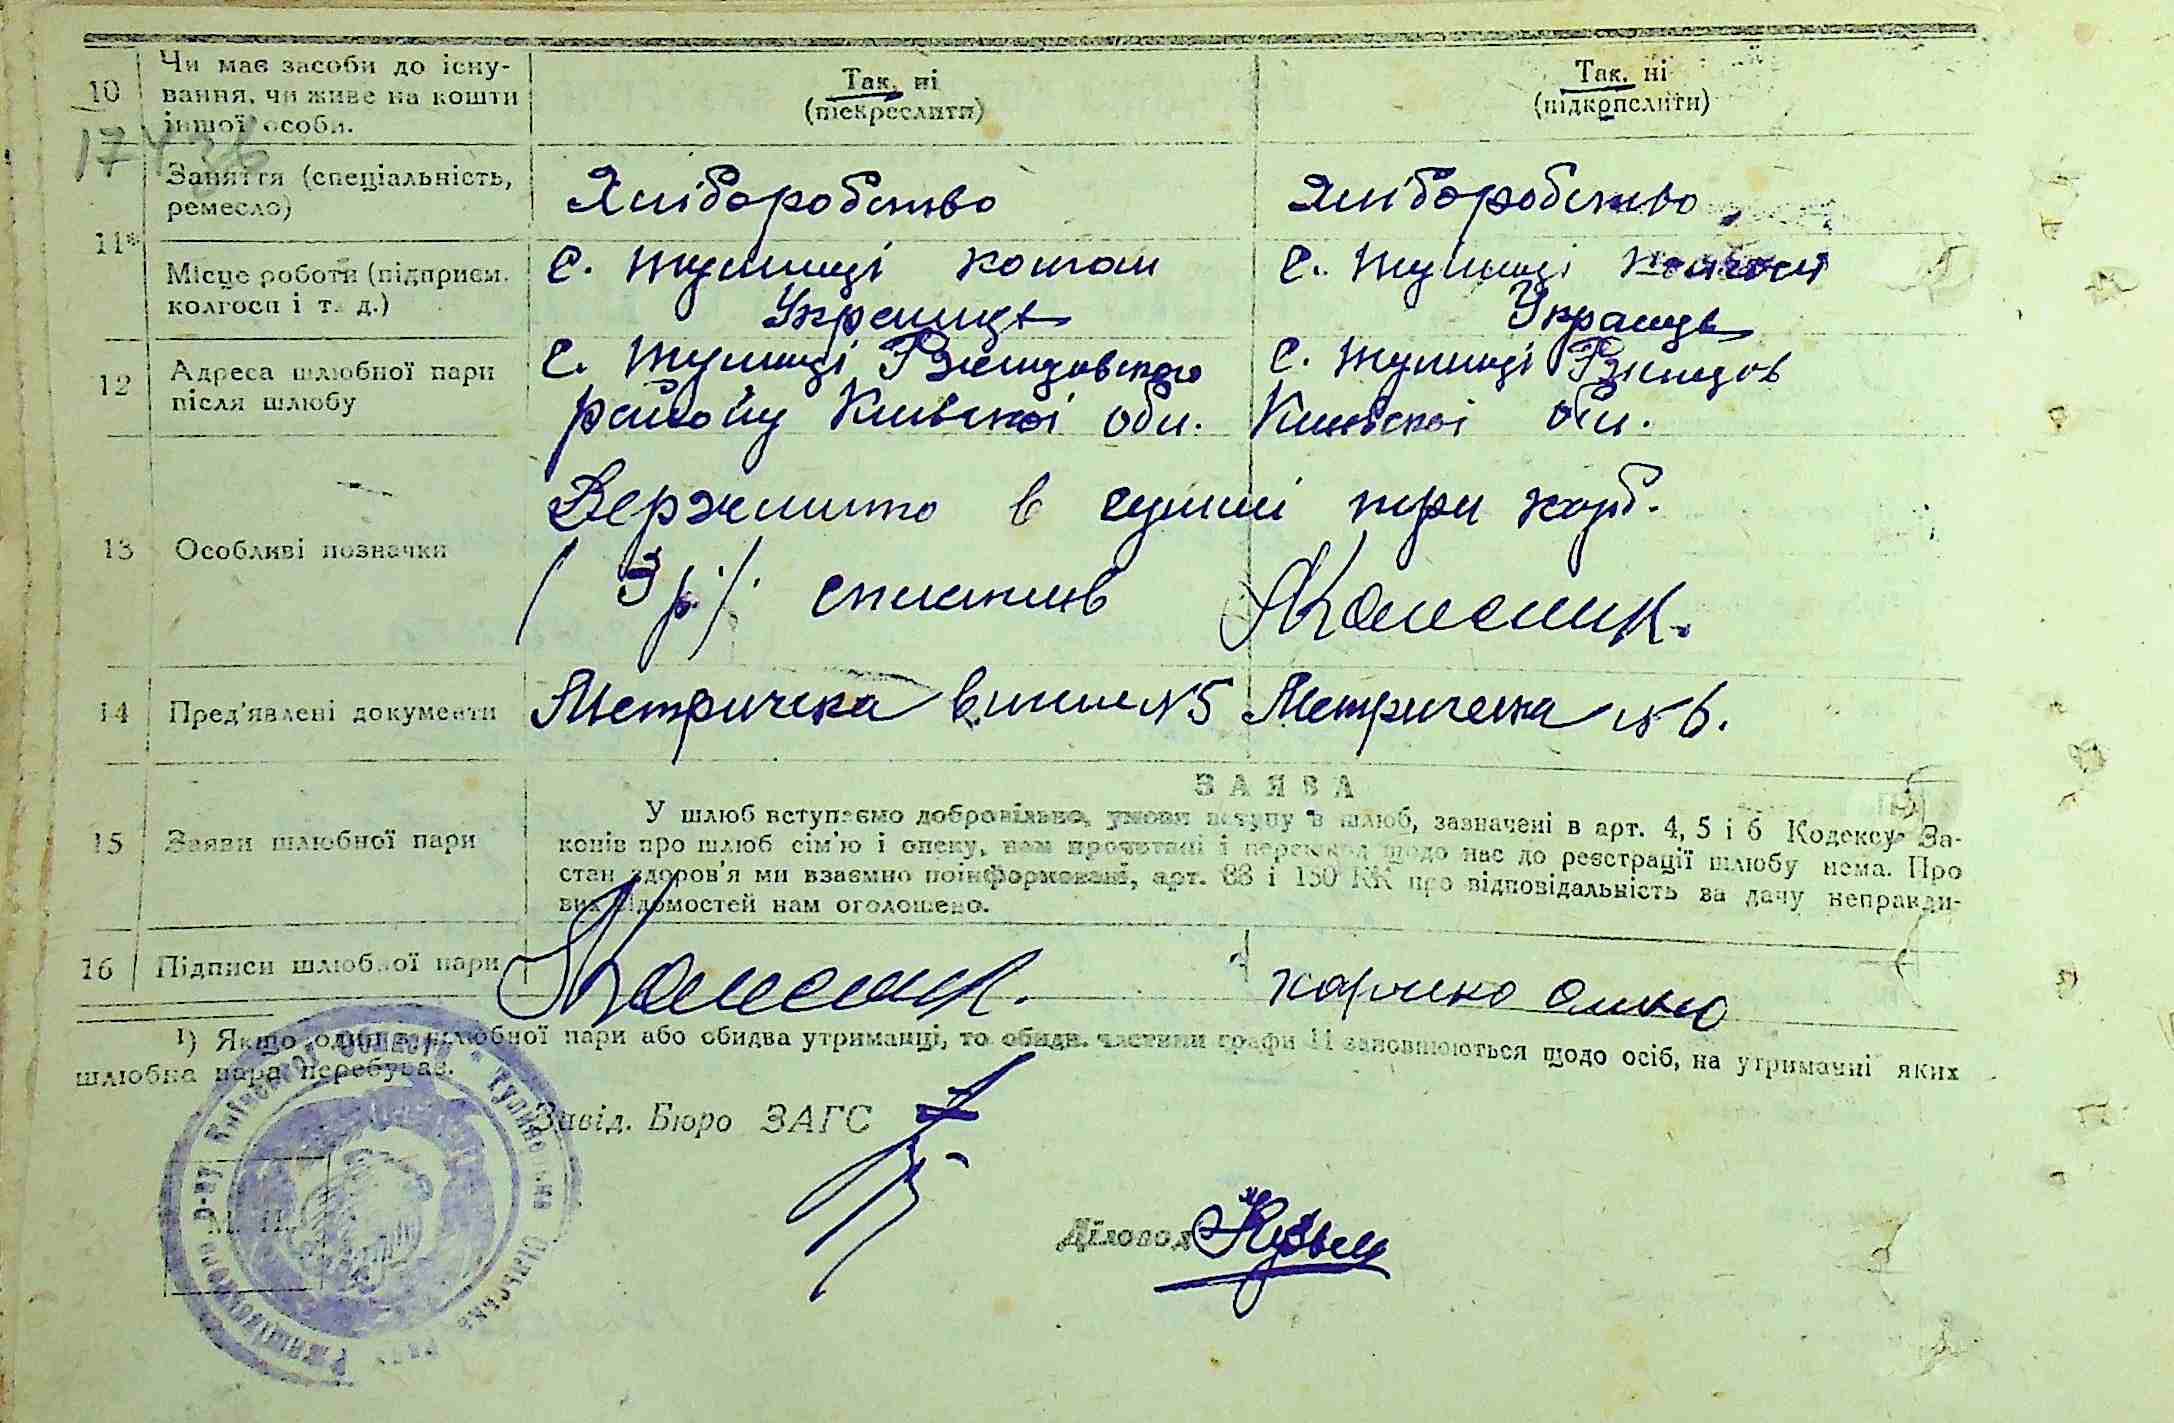 10 Чи має засоби до існу-
вання, чи живе на кошти
іншої особи.
Так, ні
(підкреслити)
Так, ні
(підкреслити)
17436
11*
Заняття (спеціальність,
ремесло)
Хліборобство
Хліборобство
Місце роботи (підприєм.
колгосп і т. д.)
с.
Українця
с.
12 Адреса шлюбної пари
після шлюбу
с. Ржищовского
району Киівскоі обл.
с. Ржищов
Киівскоі обл.
13 Особливі позначки
Держмито в сумі три карб.
( 3 р.) сплатив Колесник.
14 Пред'явлені документи
Метрическа №5
Метрическа №6.
15 Заяви шлюбної пари
ЗАЯВА
У шлюб вступаємо добровільно, умови вступу в шлюб, зазначені в арт. 4, 5 і 6 Кодексу За-
конів про шлюб сім'ю і опеку, нам прочитані і перешкод щодо нас до реєстрації шлюбу нема. Про
стан здоров'я ми взаємно поінформовані, арт. 88 і 150 КК про відповідальність за дачу неправди-
вих відомостей нам оголошено.
16 Підписи шлюбної пари
Колесник.
1) Якщо один з шлюбної пари або обидва утриманці, то обидв. частини графи 11 заповнюються щодо осіб, на утриманні яких
шлюбна пара перебуває.
Завід. Бюро ЗАГС
М. П.
Діловод